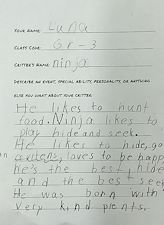 YOUR NAME: Luna
CLASS CODE: Gr-3
CRITTER'S NAME: ninja
DESCRIBE AN EVENT, SPECIAL ABILITY, PERSONALITY, OR ANYTHING
ELSE YOU WANT ABOUT YOUR CRITTER.
He likes to hunt
food. Ninja likes to
play hide and seek.
He likes to hide, go
loves to be happy
he's the best hide
and the best seek
He was born with
very kind